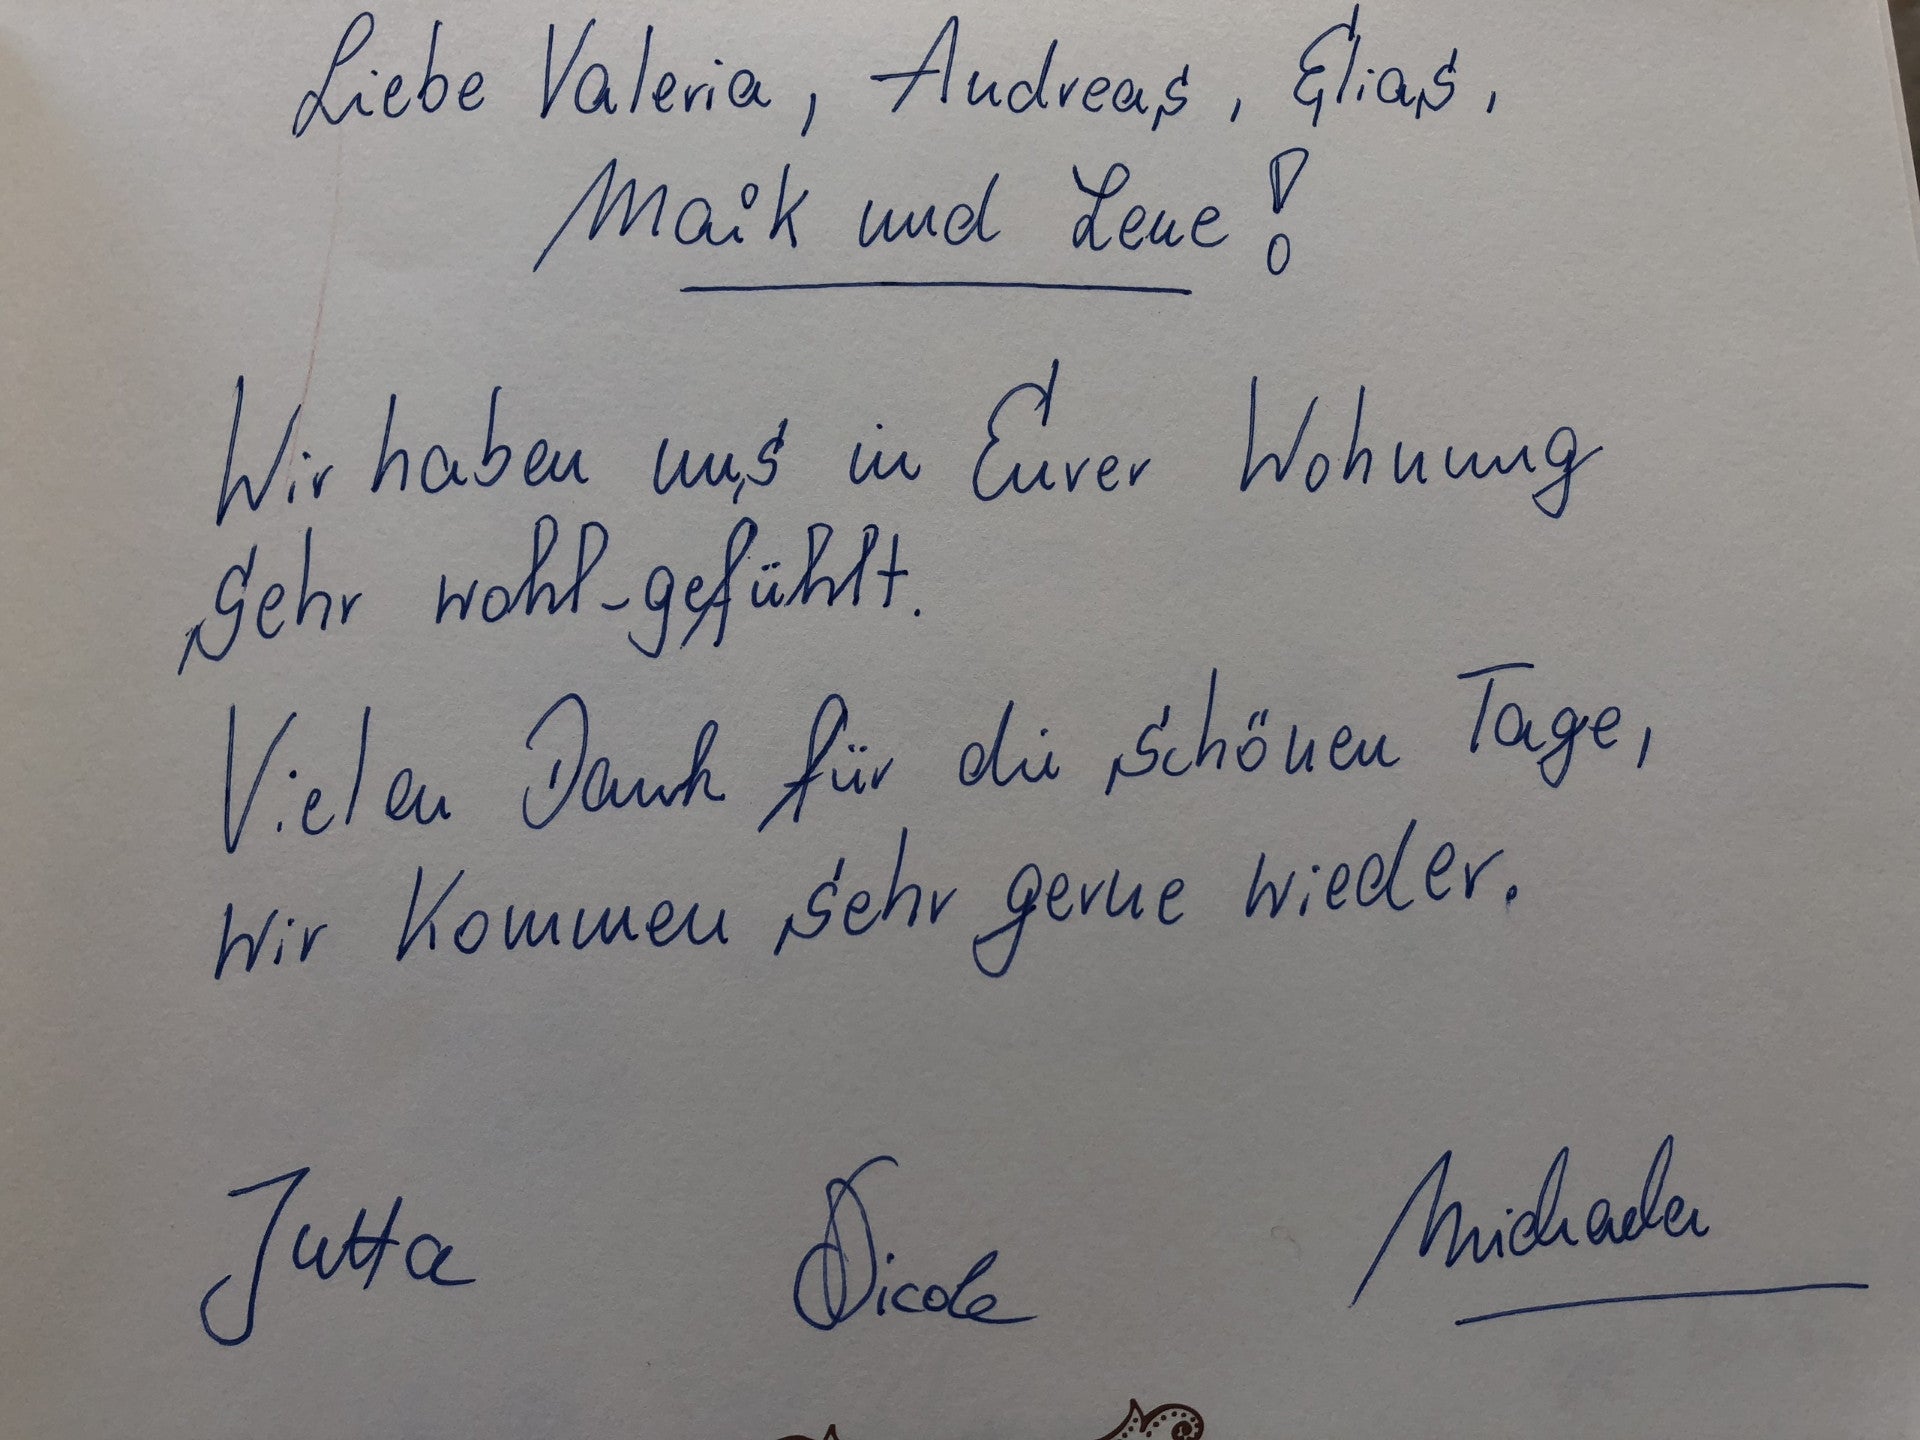 Liebe Valeria, Andreas, Elias,
Maik und Lene!
Wir haben uns in Eurer Wohnung
sehr wohl-gefühlt.
Vielen Dank für die schönen Tage,
wir kommen sehr gerne wieder.
Jutta Nicole Michaela